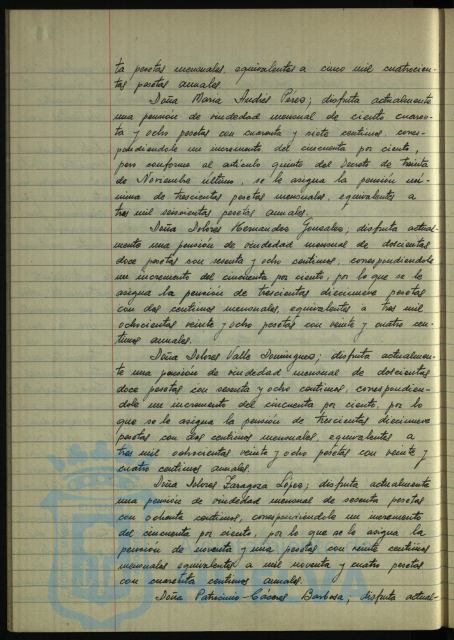 ta pesetas mensuales, equivalentes a cinco mil cuatrocien-
tas pesetas anuales.
Doña María Andrés Pérez; disfruta actualmente
una pensión de viudedad mensual de ciento cuaren-
ta y ocho pesetas con cuarenta y siete centimos, corres-
pondiendole un incremento del cincuenta por ciento,
pero conforme al artículo quinto del Decreto de treinta
de Noviembre último, se le asigna la pensión mí-
nima de trescientas pesetas mensuales, equivalentes a
tres mil seiscientas pesetas anuales.
Doña Dolores Hernandez Gonzalez, disfruta actual-
mente una pensión de viudedad mensual de doscientas
doce pesetas con sesenta y ocho centimos, correspondiendole
un incremento del cincuenta por ciento, por lo que se le
asigna la pensión de trescientas diecinueve pesetas
con dos centimos mensuales, equivalentes a tres mil
ochocientas veinte y ocho pesetas con veinte y cuatro cen-
timos anuales.
Doña Dolores Valle Dominguez; disfruta actualmen-
te una pensión de viudedad mensual de doscientas
doce pesetas con sesenta y ocho centimos, correspondien-
dole un incremento del cincuenta por ciento, por lo
que se le asigna la pensión de trescientas diecinueve
pesetas con dos centimos mensuales, equivalentes a
tres mil ochocientas veinte y ocho pesetas con veinte y
cuatro centimos anuales.
Doña Dolores Zaragoza López; disfruta actualmente
una pensión de viudedad mensual de sesenta pesetas
con ochenta centimos, correspondiéndole un incremento
del cincuenta por ciento, por lo que se le asigna la
pensión de noventa y una pesetas con veinte centimos
mensuales equivalentes a mil noventa y cuatro pesetas
con cuarenta centimos anuales.
Doña Patrocinio Cáceres Barbosa; disfruta actual-